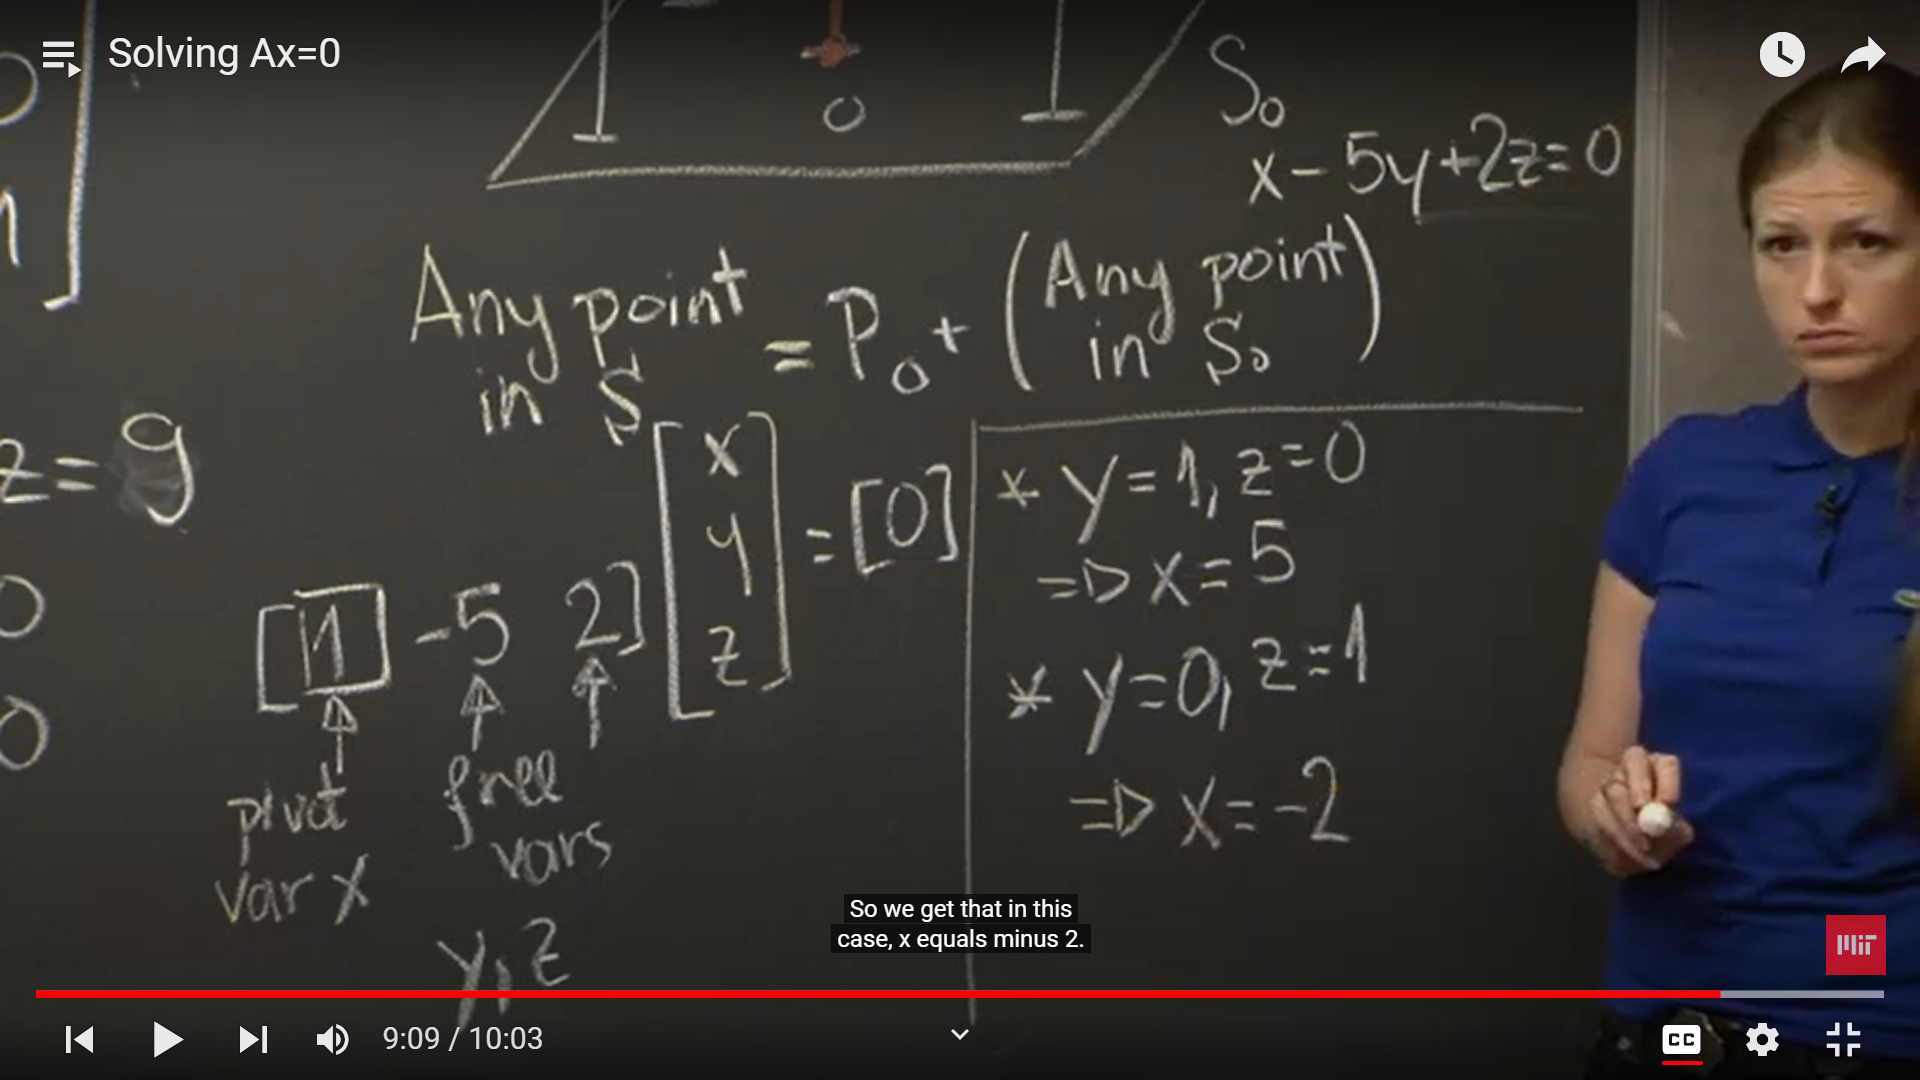 Solving Ax=0
0
S₀
x - 5y + 2z = 0
Any point in S = P₀ + (Any point in S₀)
z = 9
[1 -5 2] [x y z] = [0]
pivot var x
free vars
y, z
* y = 1, z = 0
=> x = 5
* y = 0, z = 1
=> x = -2
0
0
So we get that in this
case, x equals minus 2.
MIT
9:09 / 10:03
CC